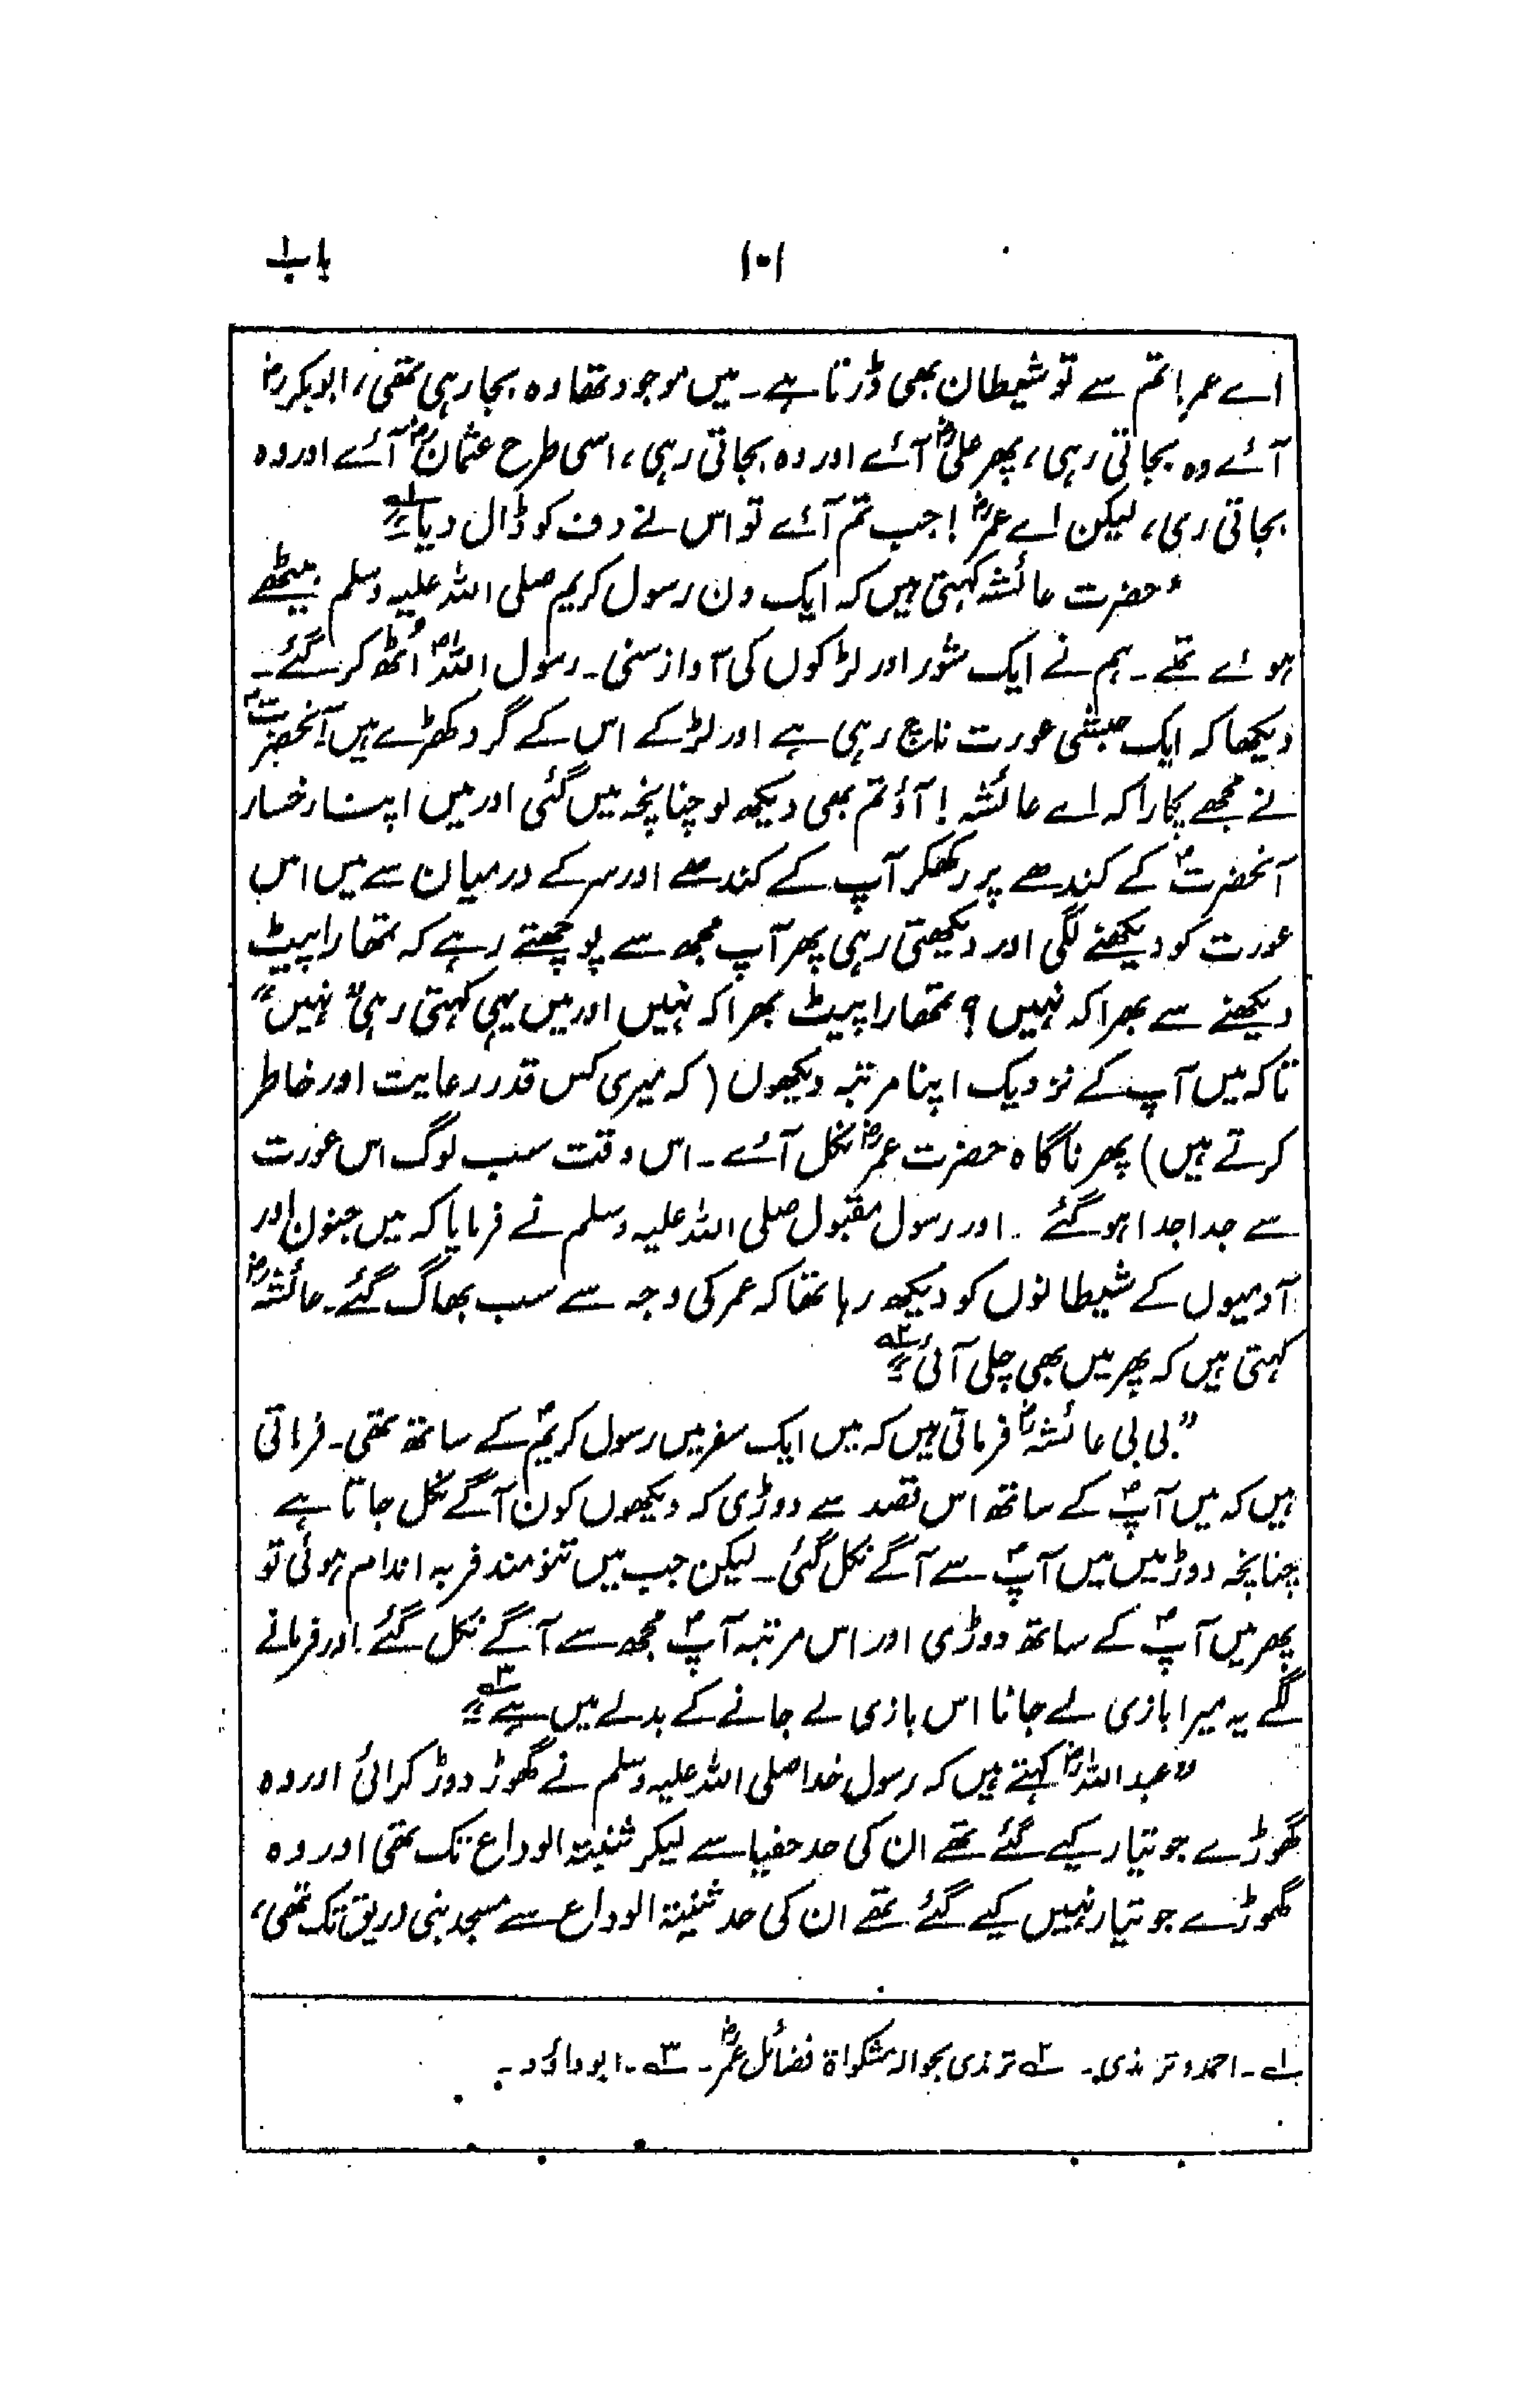 باب ۱۰۱
اے عمر! تم سے تو شیطان بھی ڈرتا ہے۔ میں موجود تھا وہ بجا رہی تھی، ابوبکرؓ
آئے وہ بجاتی رہی، پھر علیؓ آئے اور وہ بجاتی رہی، اسی طرح عثمانؓ آئے اور وہ
بجاتی رہی، لیکن اے عمرؓ! جب تم آئے تو اس نے دف کو ڈال دیا" ۱؎
"حضرت عائشہ کہتی ہیں کہ ایک دن رسول کریم صلی اللہ علیہ وسلم بیٹھے
ہوئے تھے۔ ہم نے ایک شور اور لڑکوں کی آواز سنی۔ رسول اللہؐ اُٹھ کر گئے۔
دیکھا کہ ایک حبشی عورت ناچ رہی ہے اور لڑکے اس کے گرد کھڑے ہیں آنحضرتؐ
نے مجھے پکارا کہ اے عائشہ! آؤ تم بھی دیکھ لو چنانچہ میں گئی اور میں اپنا رخسار
آنحضرتؐ کے کندھے پر رکھکر آپ کے کندھے اور سر کے درمیان سے میں اس
عورت کو دیکھنے لگی اور دیکھتی رہی پھر آپ مجھ سے پوچھتے رہے کہ تمھارا پیٹ
دیکھنے سے بھرا کہ نہیں؟ تمھارا پیٹ بھرا کہ نہیں اور میں یہی کہتی رہی "نہیں"
تاکہ میں آپ کے نزدیک اپنا مرتبہ دیکھوں (کہ میری کس قدر رعایت اور خاطر
کرتے ہیں) پھر ناگاہ حضرت عمرؓ نکل آئے۔ اس وقت سب لوگ اس عورت
سے جدا جدا ہو گئے۔ اور رسول مقبول صلی اللہ علیہ وسلم نے فرمایا کہ میں جنوں اور
آدمیوں کے شیطانوں کو دیکھ رہا تھا کہ عمر کی وجہ سے سب بھاگ گئے۔ عائشہؓ
کہتی ہیں کہ پھر میں بھی چلی آئی" ۲؎
"بی بی عائشہؓ فرماتی ہیں کہ میں ایک سفر میں رسول کریمؐ کے ساتھ تھی۔ فرماتی
ہیں کہ میں آپؐ کے ساتھ اس قصد سے دوڑی کہ دیکھوں کون آگے نکل جاتا ہے
چنانچہ دوڑ میں میں آپؐ سے آگے نکل گئی۔ لیکن جب میں تنومند فربہ اندام ہوئی تو
پھر میں آپؐ کے ساتھ دوڑی اور اس مرتبہ آپؐ مجھ سے آگے نکل گئے اور فرمانے
لگے یہ میرا بازی لے جانا اس بازی لے جانے کے بدلے میں ہے" ۳؎
"عبداللہؓ کہتے ہیں کہ رسول خدا صلی اللہ علیہ وسلم نے گھوڑ دوڑ کرائی اور وہ
گھوڑے جو تیار کیے گئے تھے ان کی حد حفیا سے لیکر ثنیتہ الوداع تک تھی اور وہ
گھوڑے جو تیار نہیں کیے گئے تھے ان کی حد ثنیتہ الوداع سے مسجد بنی دریق تک تھی،
۱؎۔ احمد و ترمذی۔ ۲؎ ترمذی بحوالہ مشکواۃ فضائل عمرؓ۔ ۳؎۔ ابوداؤد۔